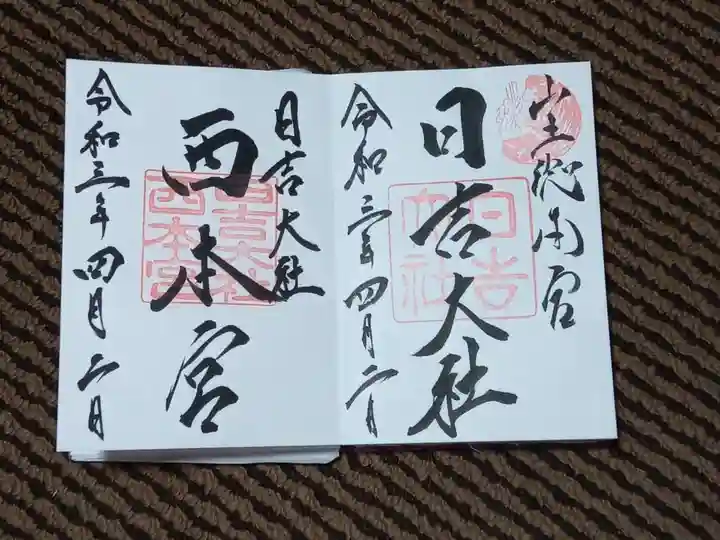 山王総本宮
日吉大社
令和三年四月二日
日吉大社
日吉大社
西本宮
日吉大社
西本宮
令和三年四月二日